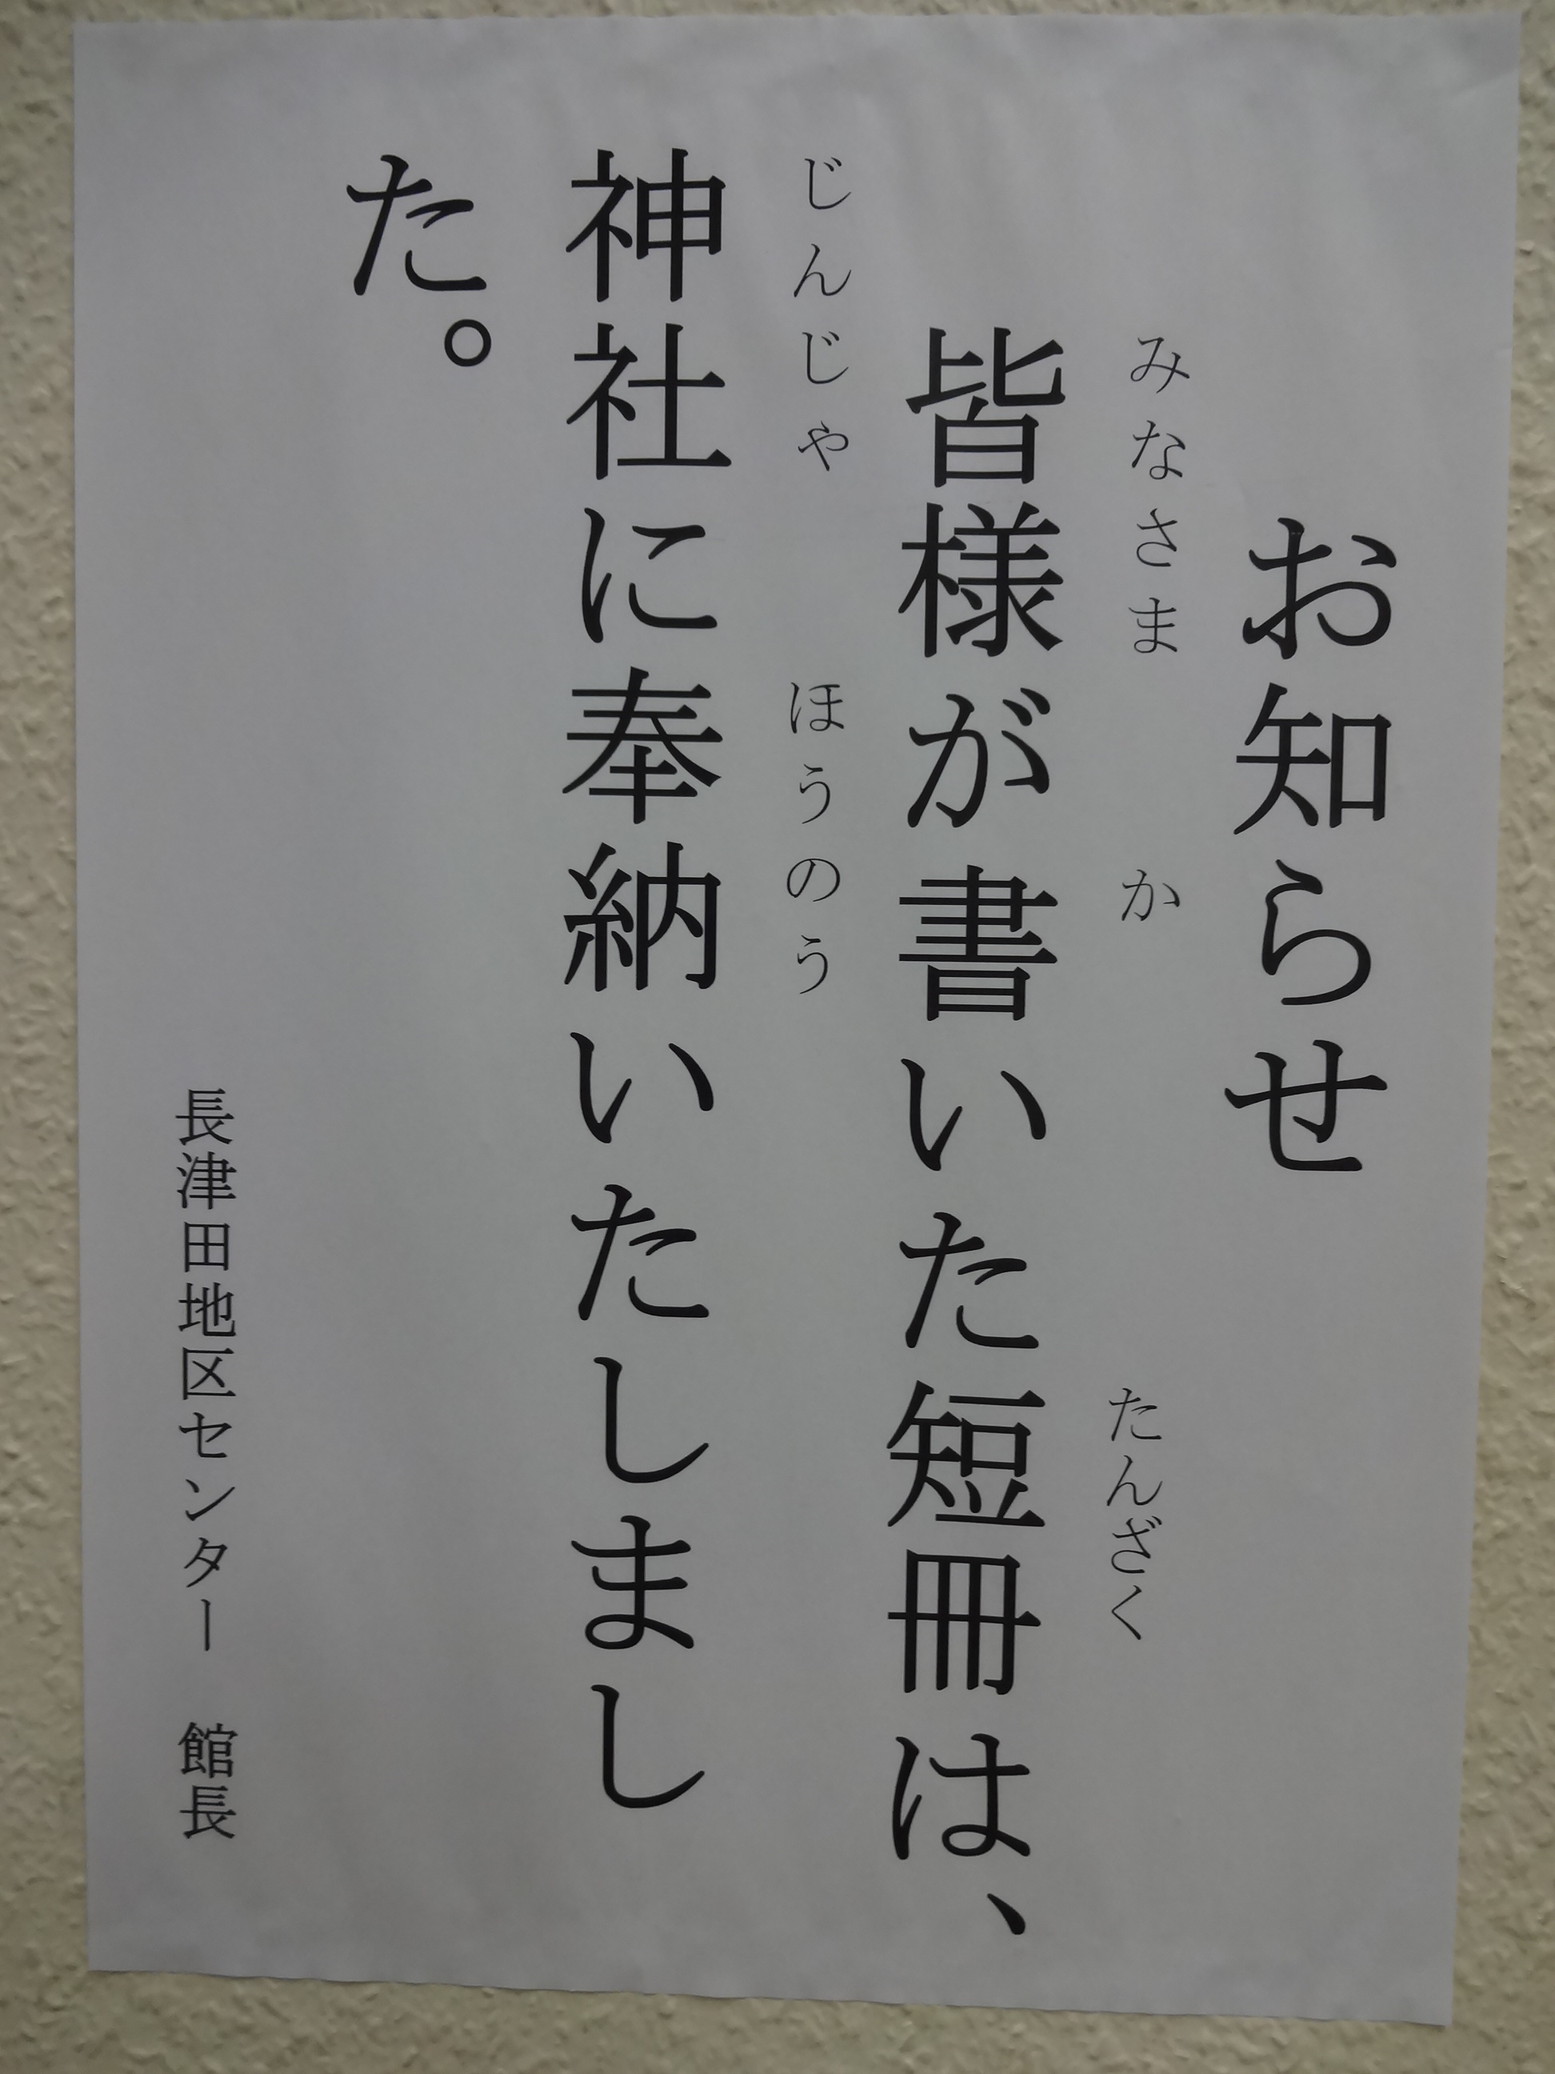 お知らせ
みなさま か たんざく
皆様が書いた短冊は、
じんじゃ ほうのう
神社に奉納いたしまし
た。
長津田地区センター 館長